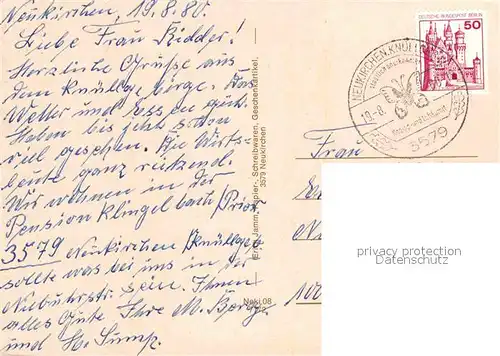 Neukirchen, 19.8.80.
Liebe Frau Ridder!
Herzliche Grüsse aus
dem Knüllgebirge. Das
Wetter und Essen gut.
Haben bis jetzt schon
viel gesehen. Die Wirts-
leute ganz reizend.
Wir wohnen in der
Pension Klingelbach
3579 Neukirchen (Knüllgeb
sollte was bei uns in der
Niebuhrstr. sein. Ihnen
alles Gute Ihre M.
und H.
Papier-, Schreibwaren, Geschenkartikel,
3579 Neukirchen
Neki 08
DEUTSCHE BUNDESPOST BERLIN
50
NEUKIRCHEN, KNÜLL
19.-8.
3579
Frau
privacy protection
Datenschutz